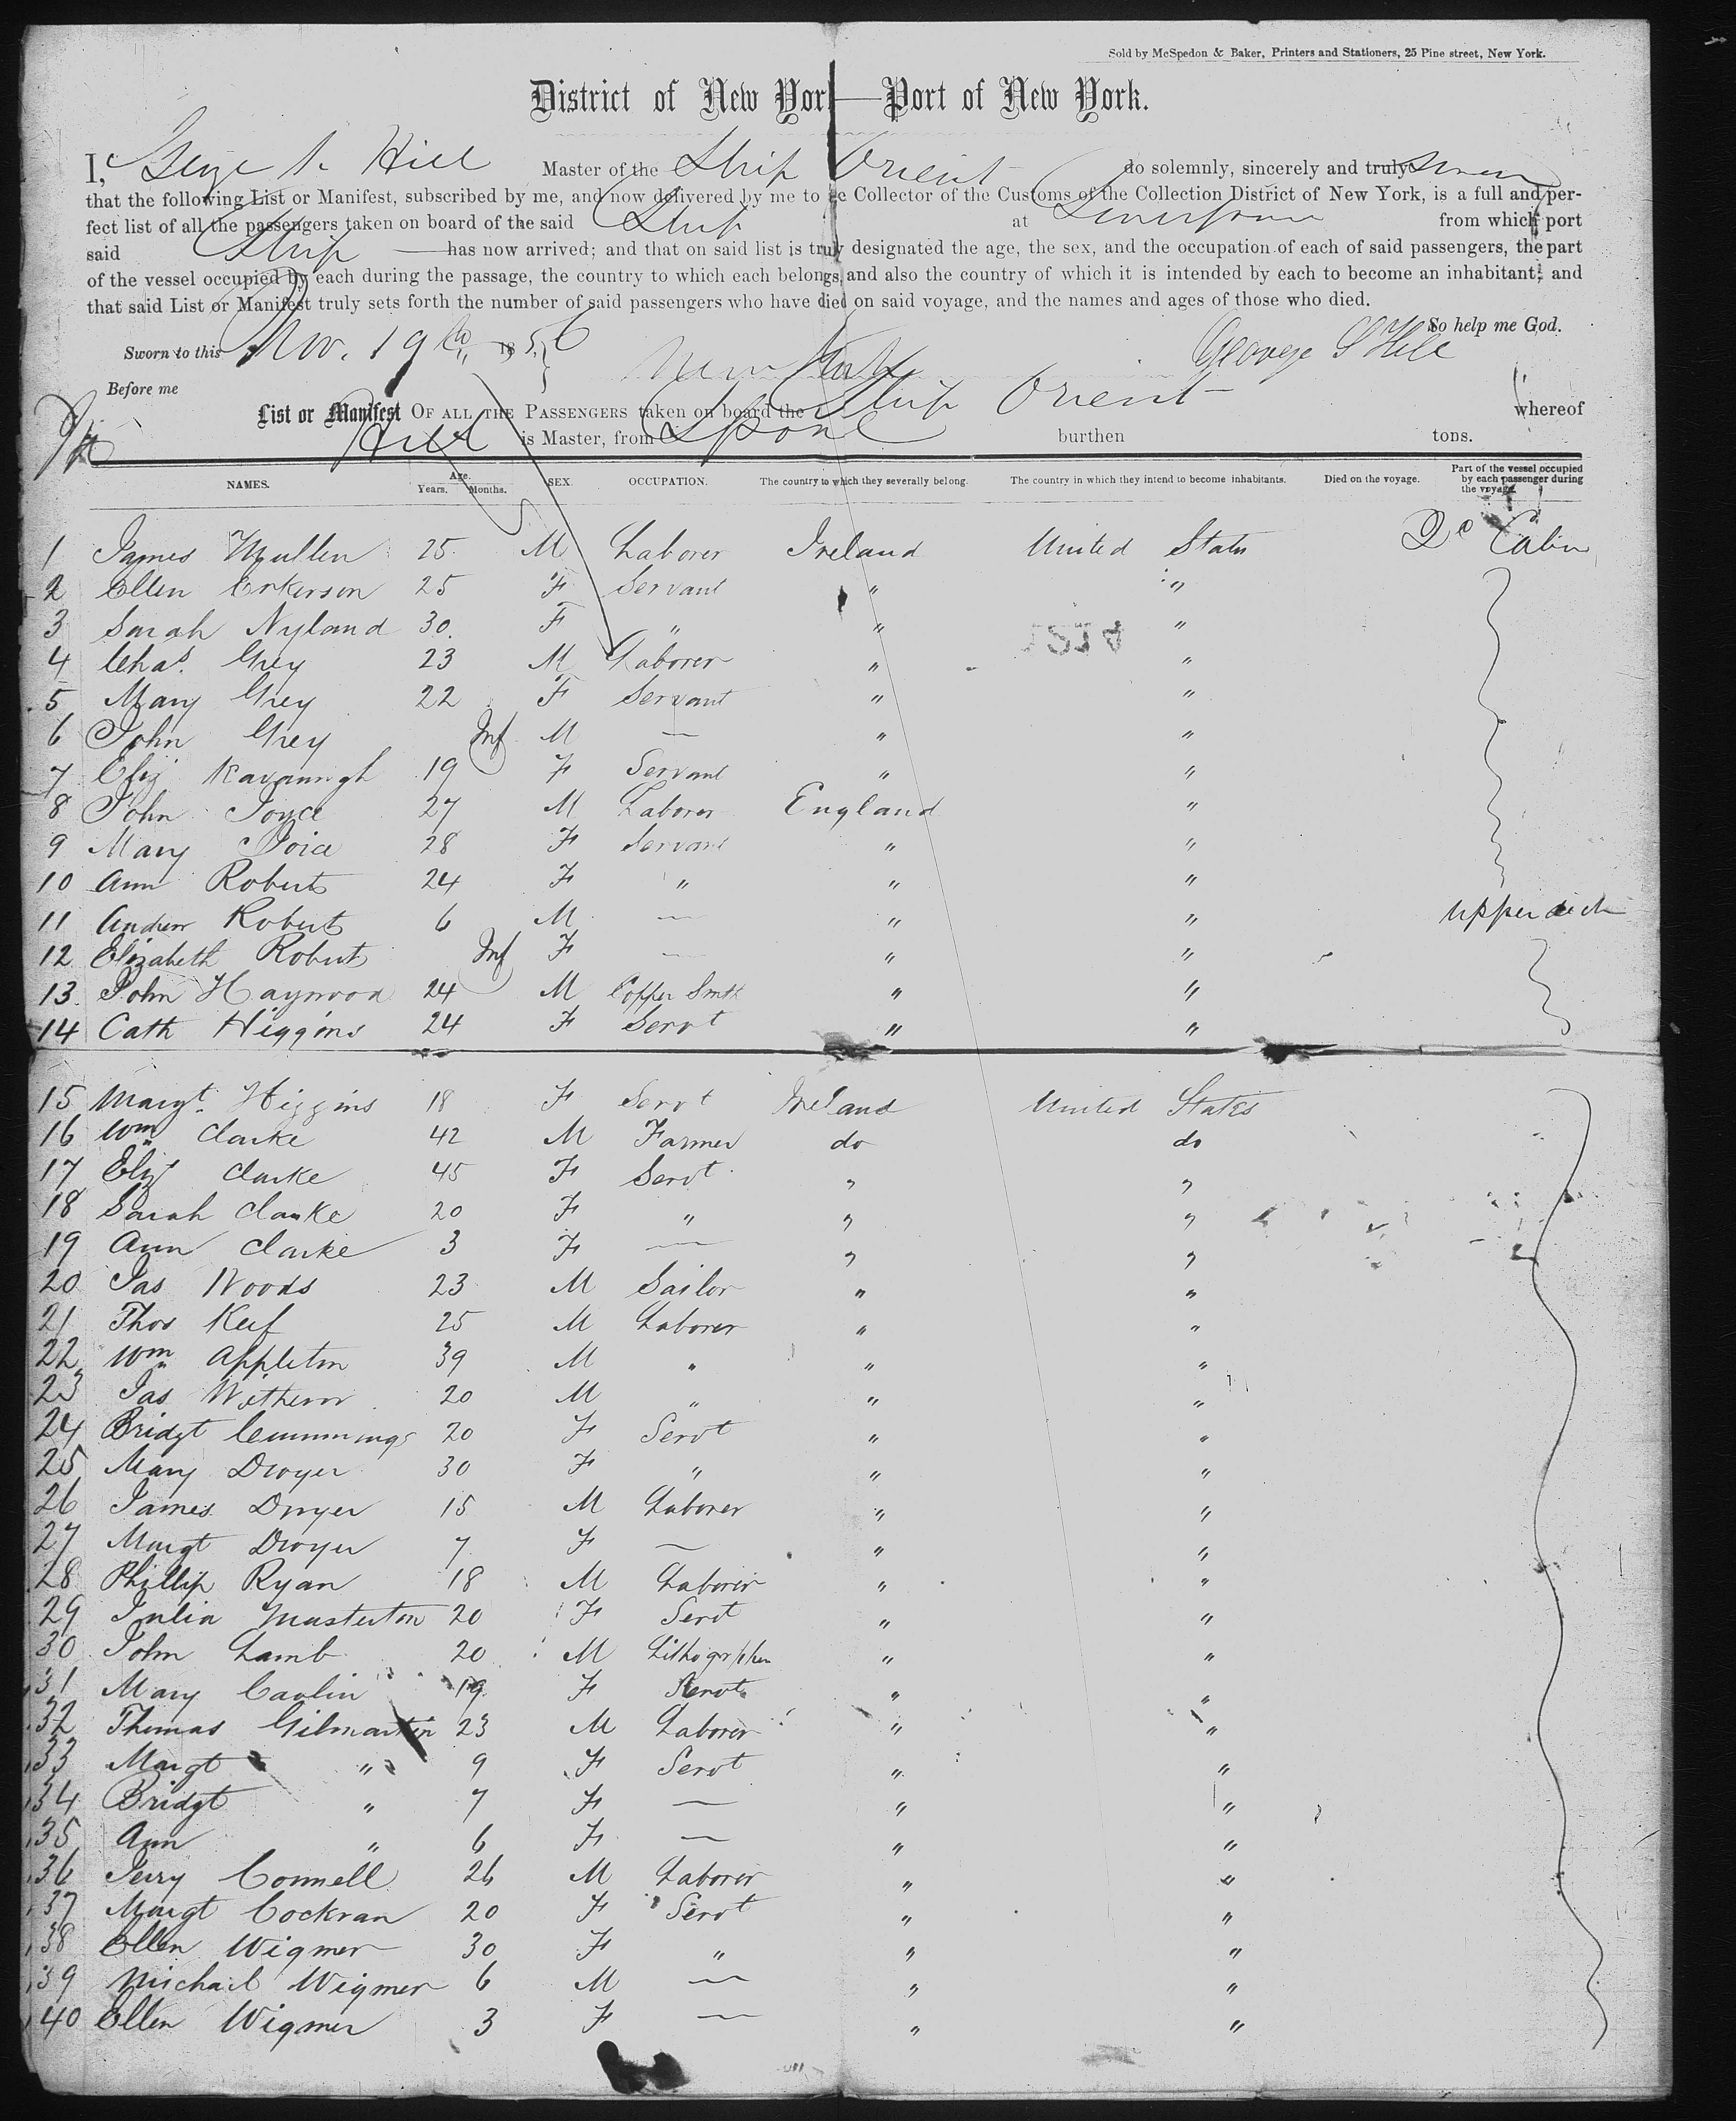 Sold by McSpedon & Baker, Printers and Stationers, 25 Pine street, New York.
District of New York—Port of New York.
I, Hill Master of the Ship Orient do solemnly, sincerely and truly swear
that the following List or Manifest, subscribed by me, and now delivered by me to the Collector of the Customs of the Collection District of New York, is a full and per-
fect list of all the passengers taken on board of the said Ship at Liverpool from which port
said Ship has now arrived; and that on said list is truly designated the age, the sex, and the occupation of each of said passengers, the part
of the vessel occupied by each during the passage, the country to which each belongs, and also the country of which it is intended by each to become an inhabitant; and
that said List or Manifest truly sets forth the number of said passengers who have died on said voyage, and the names and ages of those who died.
So help me God.
Sworn to this Nov. 19th 1856 George S Hill
Before me New York
List or Manifest OF ALL THE PASSENGERS taken on board the Ship Orient whereof
Hill is Master, from Lpool burthen tons.
NAMES. Age. Years. Months. SEX. OCCUPATION. The country to which they severally belong. The country in which they intend to become inhabitants. Died on the voyage. Part of the vessel occupied by each passenger during the voyage.
1 James Mullen 25 M Laborer Ireland United States 2c Cabin
2 Ellen Erkerson 25 F Servant " "
3 Sarah Nyland 30 F " " "
4 Chas. Grey 23 M Laborer " "
5 Mary Grey 22 F Servant " "
6 John Grey Inf M — " "
7 Eliz Kavanngh 19 F Servant " "
8 John Joyce 27 M Laborer England "
9 Mary Joice 28 F Servant " "
10 Ann Roberts 24 F " " "
11 Andrew Roberts 6 M — " " upper deck
12 Elizabeth Roberts Inf F — " "
13 John Haywood 24 M Copper Smth " "
14 Cath Higgins 24 F Servt " "
15 Margt. Higgins 18 F Servt Ireland United States
16 Wm Clarke 42 M Farmer do do
17 Elizt Clarke 45 F Servt " "
18 Sarah Clarke 20 F " " "
19 Ann Clarke 3 F — " "
20 Jas Woods 23 M Sailor " "
21 Thos Keef 25 M Laborer " "
22 Wm Appleton 39 M " " "
23 Jas 20 M " " "
24 Bridgt Cummings 20 F Servt " "
25 Mary Dwyer 30 F " " "
26 James Dwyer 15 M Laborer " "
27 Margt Dwyer 7 F — " "
28 Phillip Ryan 18 M Laborer " "
29 Julia Masterton 20 F Servt " "
30 John Lamb 20 M Lithographer " "
31 Mary Caulin 19 F Servt " "
32 Thomas Gilmartin 23 M Laborer " "
33 Margt " 9 F Servt " "
34 Bridgt " 7 F — " "
35 Ann " 6 F — " "
36 Jerry Connell 26 M Laborer " "
37 Margt Cockran 20 F Servt " "
38 Ellen Wigmer 30 F " " "
39 Michael Wigmer 6 M — " "
40 Ellen Wigmer 3 F — " "